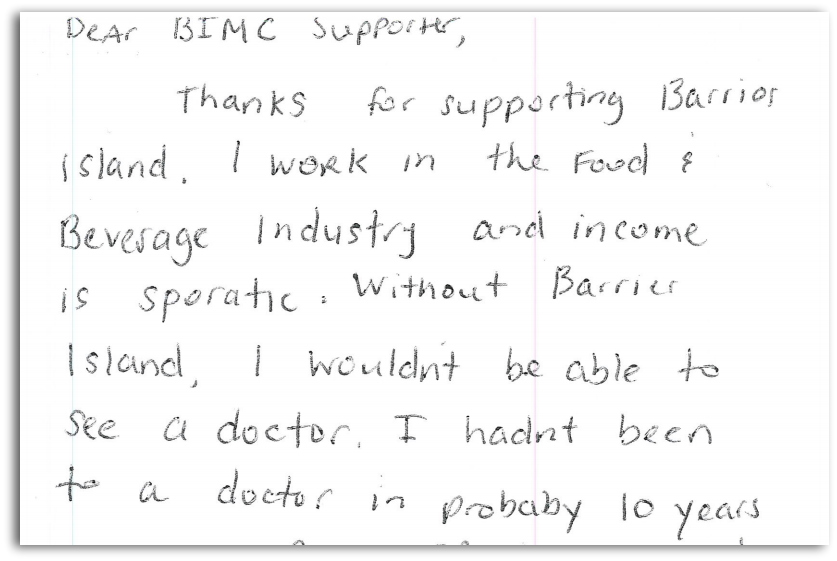 Dear BIMC Supporter,
Thanks for supporting Barrior
Island. I work in the Food &
Beverage Industry and income
is sporatic. Without Barrier
Island, I wouldnt be able to
see a doctor. I hadnt been
to a doctor in probaby 10 years